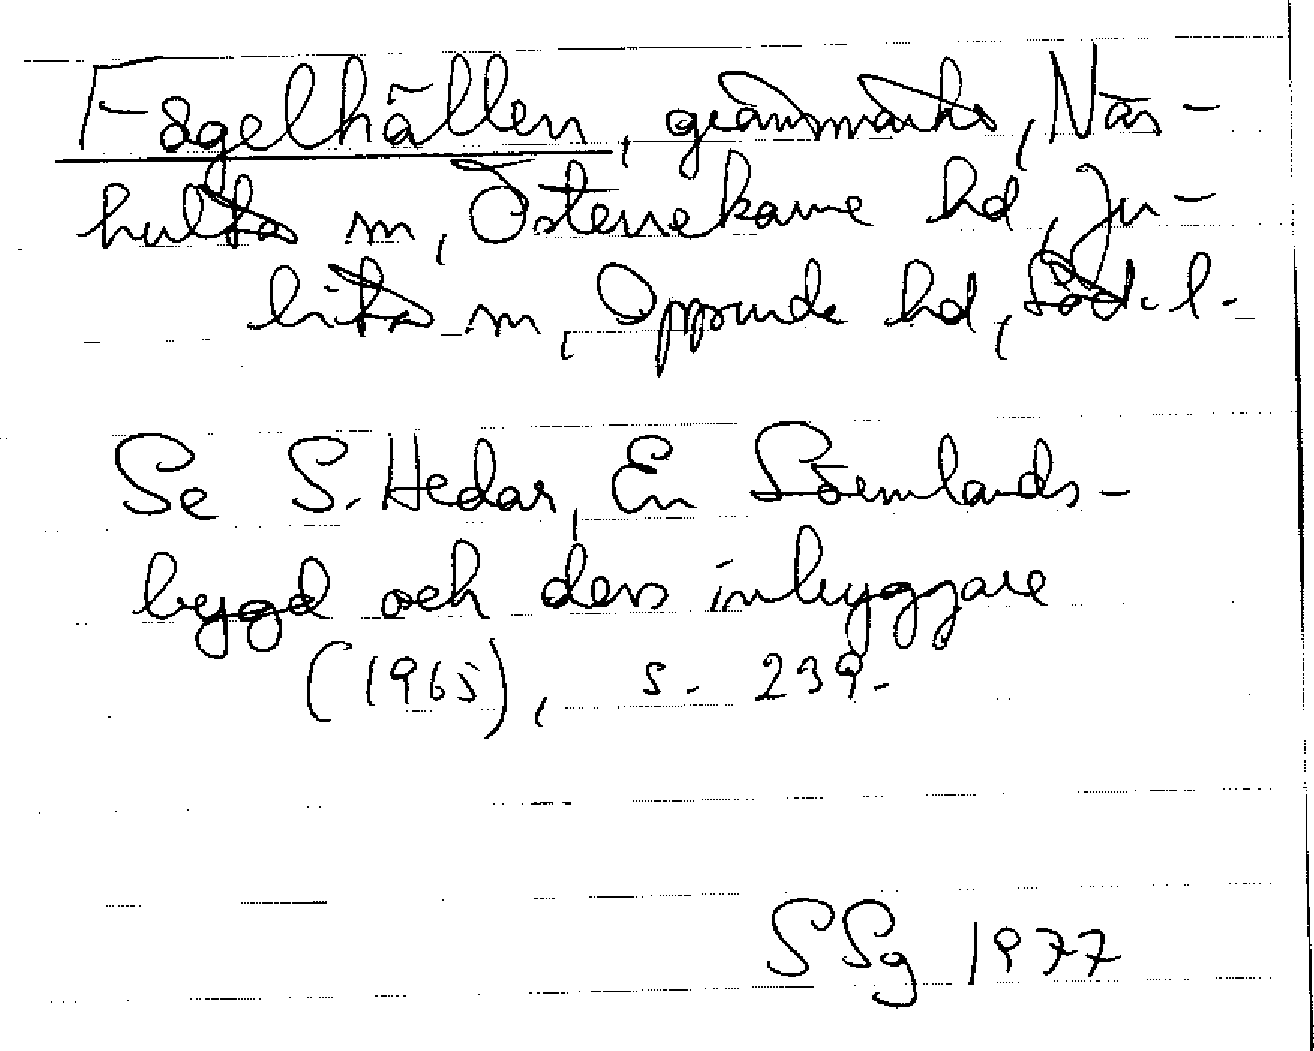 Fågelhällen, gränsmärke, Näs-
hulta sn, Österrekarne hd, Ju-
lita sn, Oppunda hd, Söd. l.
Se S. Hedar, En Sörmlands-
bygd och dess inbyggare
(1965), s. 239.
SSg 1977